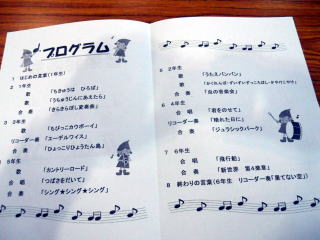 プログラム
1 はじめの言葉(1年生)
2 1年生
歌 「ちきゅうは ひろば」
歌 「うちゅうじんにあえたら」
合奏 「きらきらぼし変奏曲」
3 3年生
歌 「ちびっこカウボーイ」
リコーダー奏 「エーデルワイス」
合奏 「ひょっこりひょうたん島」
5年生
歌 「カントリーロード」
合唱 「つばさをだいて」
合奏 「シング★シング★シング」
5 2年生
歌 「うたえバンバン」
歌
合奏 「虫の音楽会」
6 4年生
合唱 「君をのせて」
リコーダー奏 「晴れた日に」
合奏 「ジュラシックパーク」
7 6年生
合唱 「飛行船」
合奏 「新世界 第4楽章」
8 終わりの言葉(6年生 リコーダー奏「果てない空」)